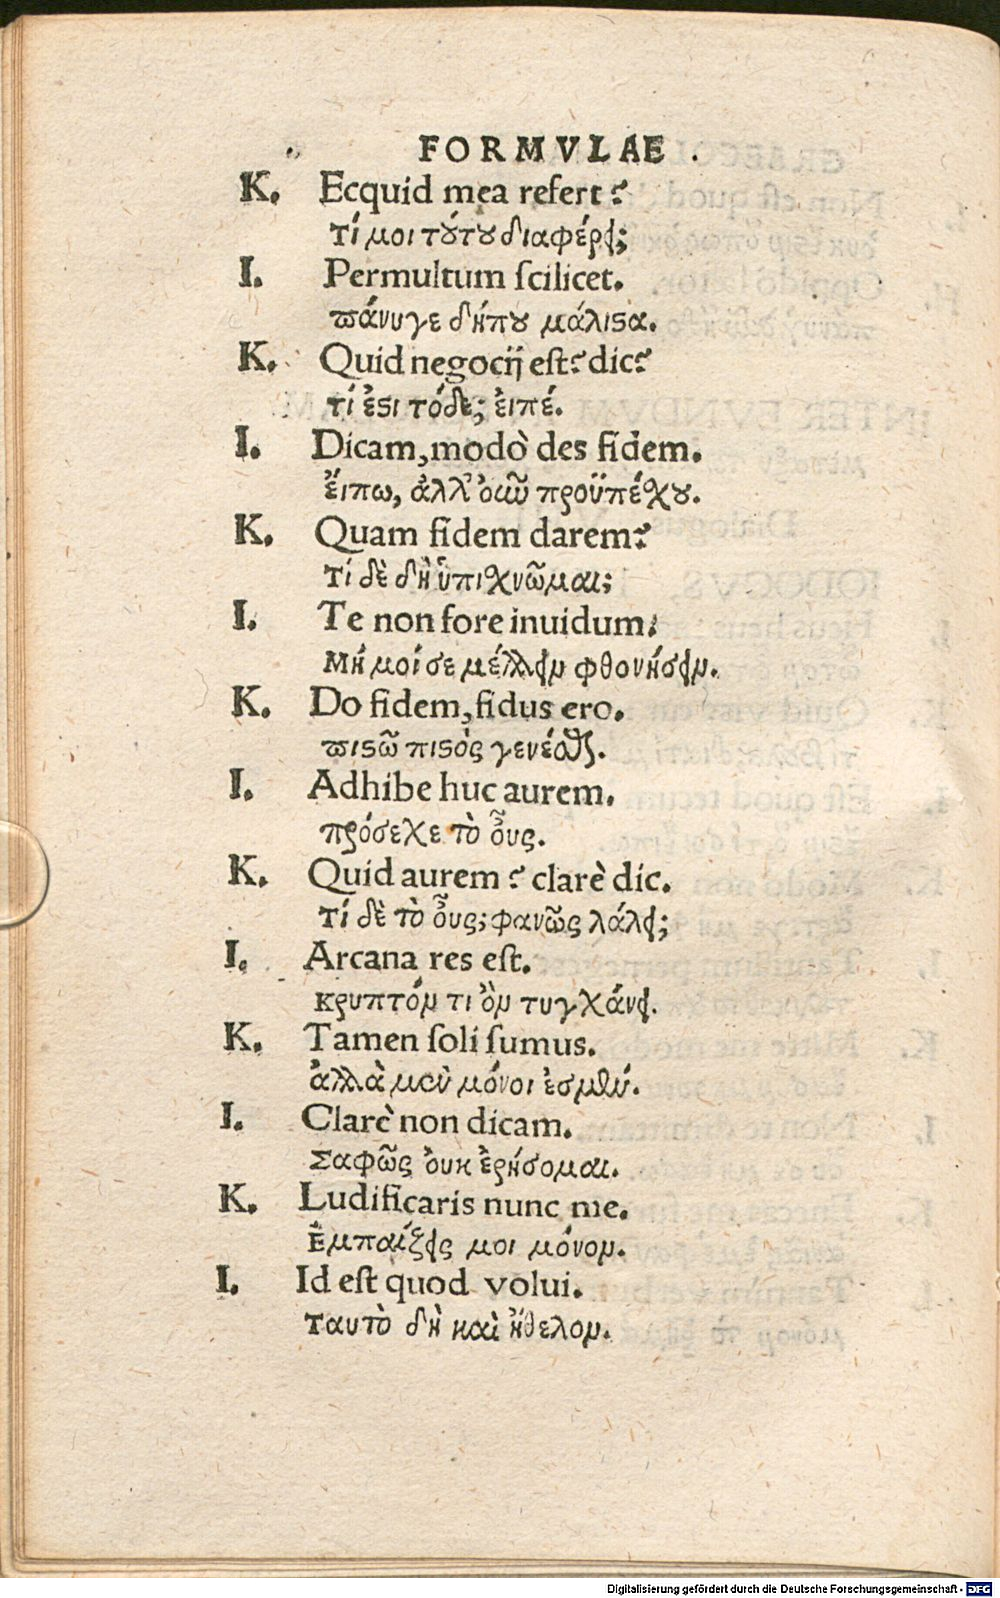 FORMVLAE .
K. Ecquid mea refert?
τί μοι τȣ́τȣ διαφέρει;
I. Permultum ſcilicet.
πάνυγε δήπȣ μάλιϛα.
K. Quid negocij eſt? dic?
τί ἐϛι τόδε; ἐιπέ.
I. Dicam, modò des fidem.
ἔιπω, ἀλλ' ὀυῦ προϋπέχȣ.
K. Quam fidem darem?
Τί δὲ δὴ ὑπιχνῶμαι;
I. Te non fore inuidum.
Μή μοί σε μέλλειν φθονήσειν.
K. Do fidem, fidus ero.
πιϛῶ πιϛὸς γενέσθαι.
I. Adhibe huc aurem.
πρόσεχε τὸ ὖους.
K. Quid aurem? clarè dic.
Τί δὲ τὸ ὖους; φανῶς λάλει;
I. Arcana res eſt.
κρυπτόν τι ὂν τυγχάνει.
K. Tamen ſoli ſumus.
ἀλλὰ μὲν μόνοι ἐσμέν.
I. Clarè non dicam.
Σαφῶς ὀυκ ἐρήσομαι.
K. Ludificaris nunc me.
Ἐμπαίξεις μοι μόνον.
I. Id eſt quod volui.
Ταυτὸ δὴ καὶ ἤθελον.
Digitalisierung gefördert durch die Deutsche Forschungsgemeinschaft - DFG